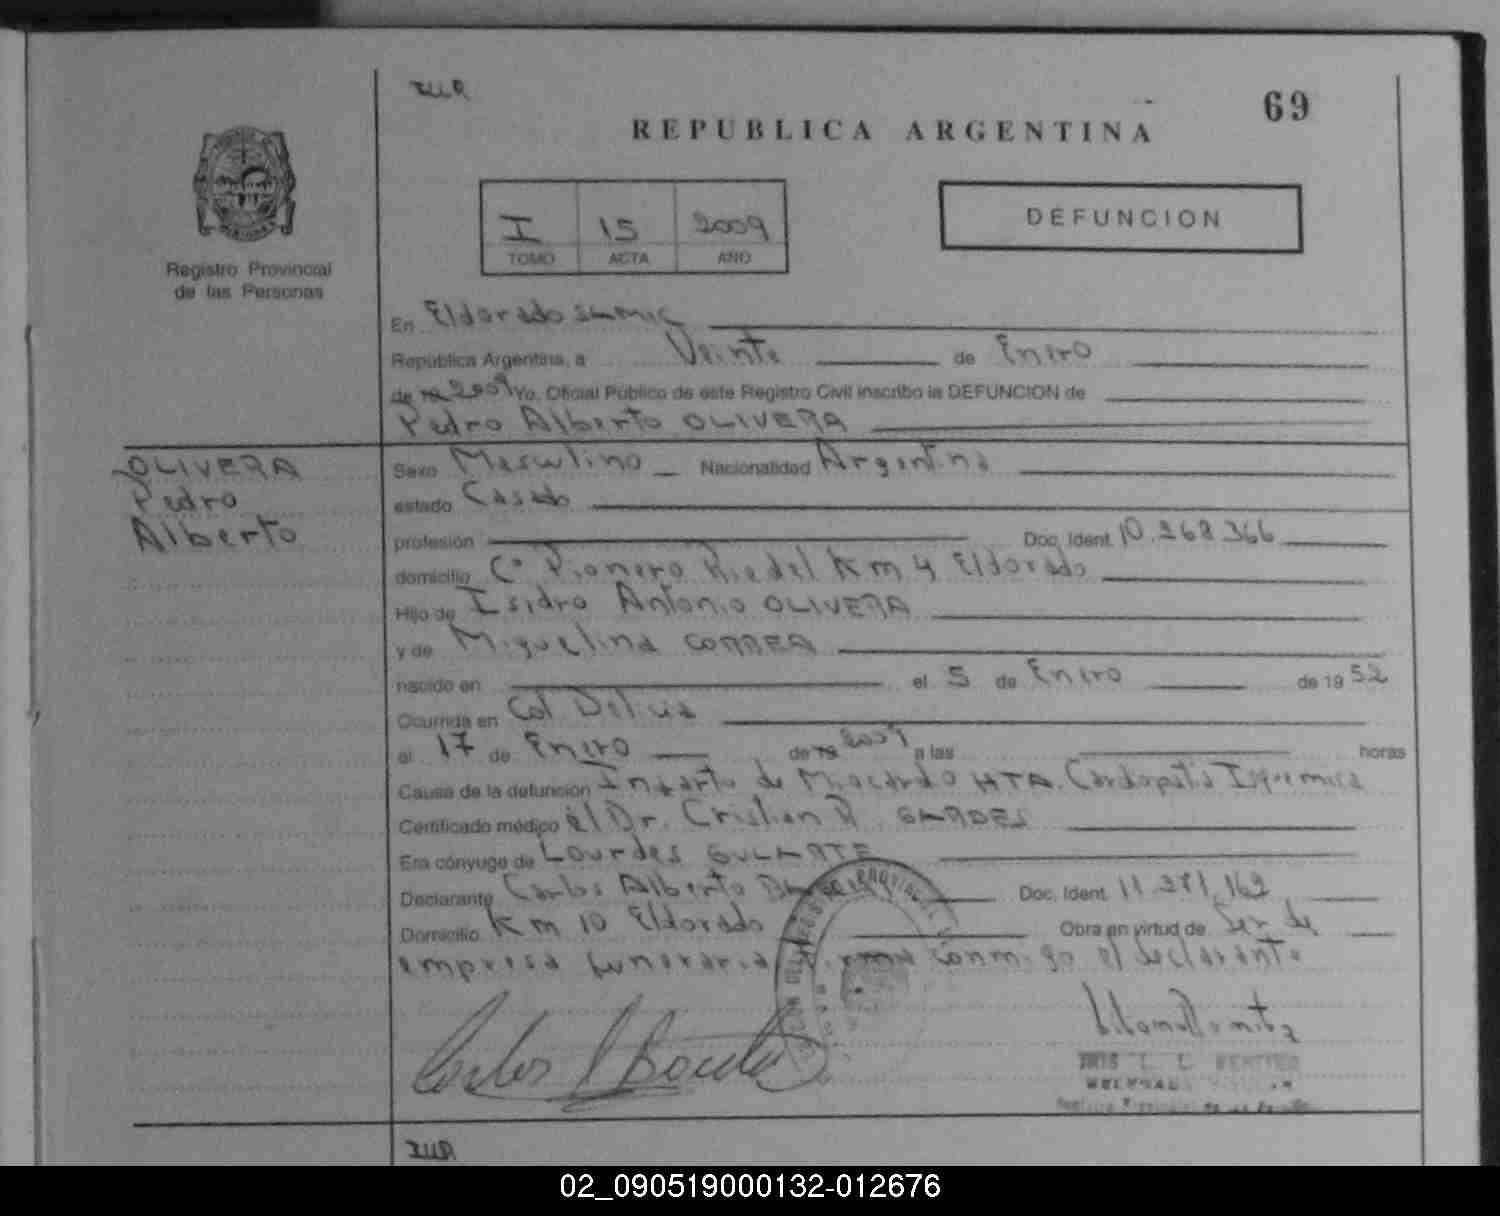 69
REPUBLICA ARGENTINA
I 15 2009
TOMO ACTA AÑO
DEFUNCION
Registro Provincial
de las Personas
En Eldorado
República Argentina, a Veinte de Enero
de 19 2009 Yo, Oficial Público de este Registro Civil inscribo la DEFUNCION de
Pedro Alberto OLIVERA
OLIVERA
Pedro
Alberto
Sexo Masculino Nacionalidad Argentina
estado Casado
profesión Doc. Ident. 10.268.366
domicilio C° Pionero Riedel Km 4 Eldorado
Hijo de Isidro Antonio OLIVERA
y de Miguelina CORREA
nacido en el 5 de Enero de 19 52
Ocurrida en Col Delicia
el 17 de Enero de 19 2009 a las horas
Causa de la defunción Infarto de Miocardio HTA. Cardopatia Isquemica
Certificado médico el Dr. Cristian R.
Era cónyuge de Lourdes
Declarante Carlos Alberto Doc. Ident. 11.271.162
Domicilio Km 10 Eldorado Obra en virtud de Ser de
empresa funeraria firma conmigo el declarante
02_090519000132-012676